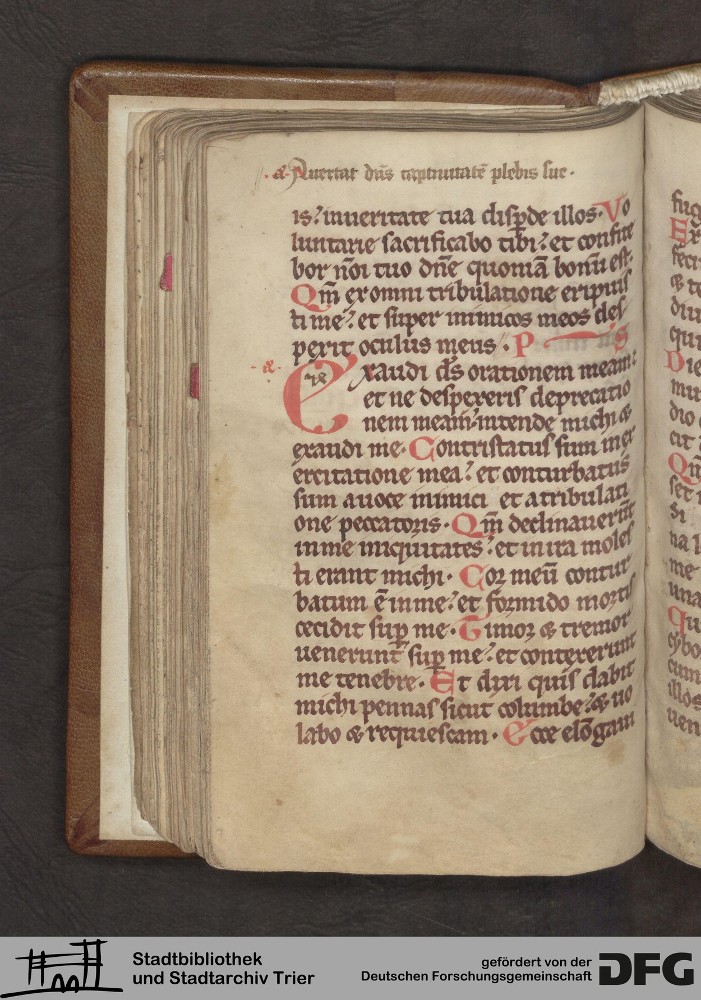 a. Auertat dn̄s captiuitatē plebis sue.
is? inueritate tua disp̄de illos. Vo
luntarie sacrificabo tibi? et confite
bor nōi tuo dn̄e quoniā bonū est.
Qm̄ ex omni tribulatione eripuis
ti me? et super inimicos meos des
pexit oculus meus. P
a.
Exaudi ds̄ orationem meam?
et ne despexeris deprecatio
nem meam? intende michi &
exaudi me. Contristatus sum in ex
ercitatione mea? et conturbatus
sum auoce inimici et atribulati
one peccatoris. Qm̄ declinauerūt
inme iniquitates? et in ira moles
ti erant michi. Cor meū contur
batum ē inme? et formido mortis
cecidit sup̄ me. Timor & tremor
uenerunt sup̄ me? et contexerunt
me tenebre. Et dixi quis dabit
michi pennas sicut columbe? & uo
labo & requiescam. Ecce elōgaui
fug
E
feci
& te
diu
qui
Die
mu
dio
cit
Qm̄
set
si
na
me
una
Qu
cybo
cum
illos
uen
Stadtbibliothek
und Stadtarchiv Trier
gefördert von der
Deutschen Forschungsgemeinschaft
DFG